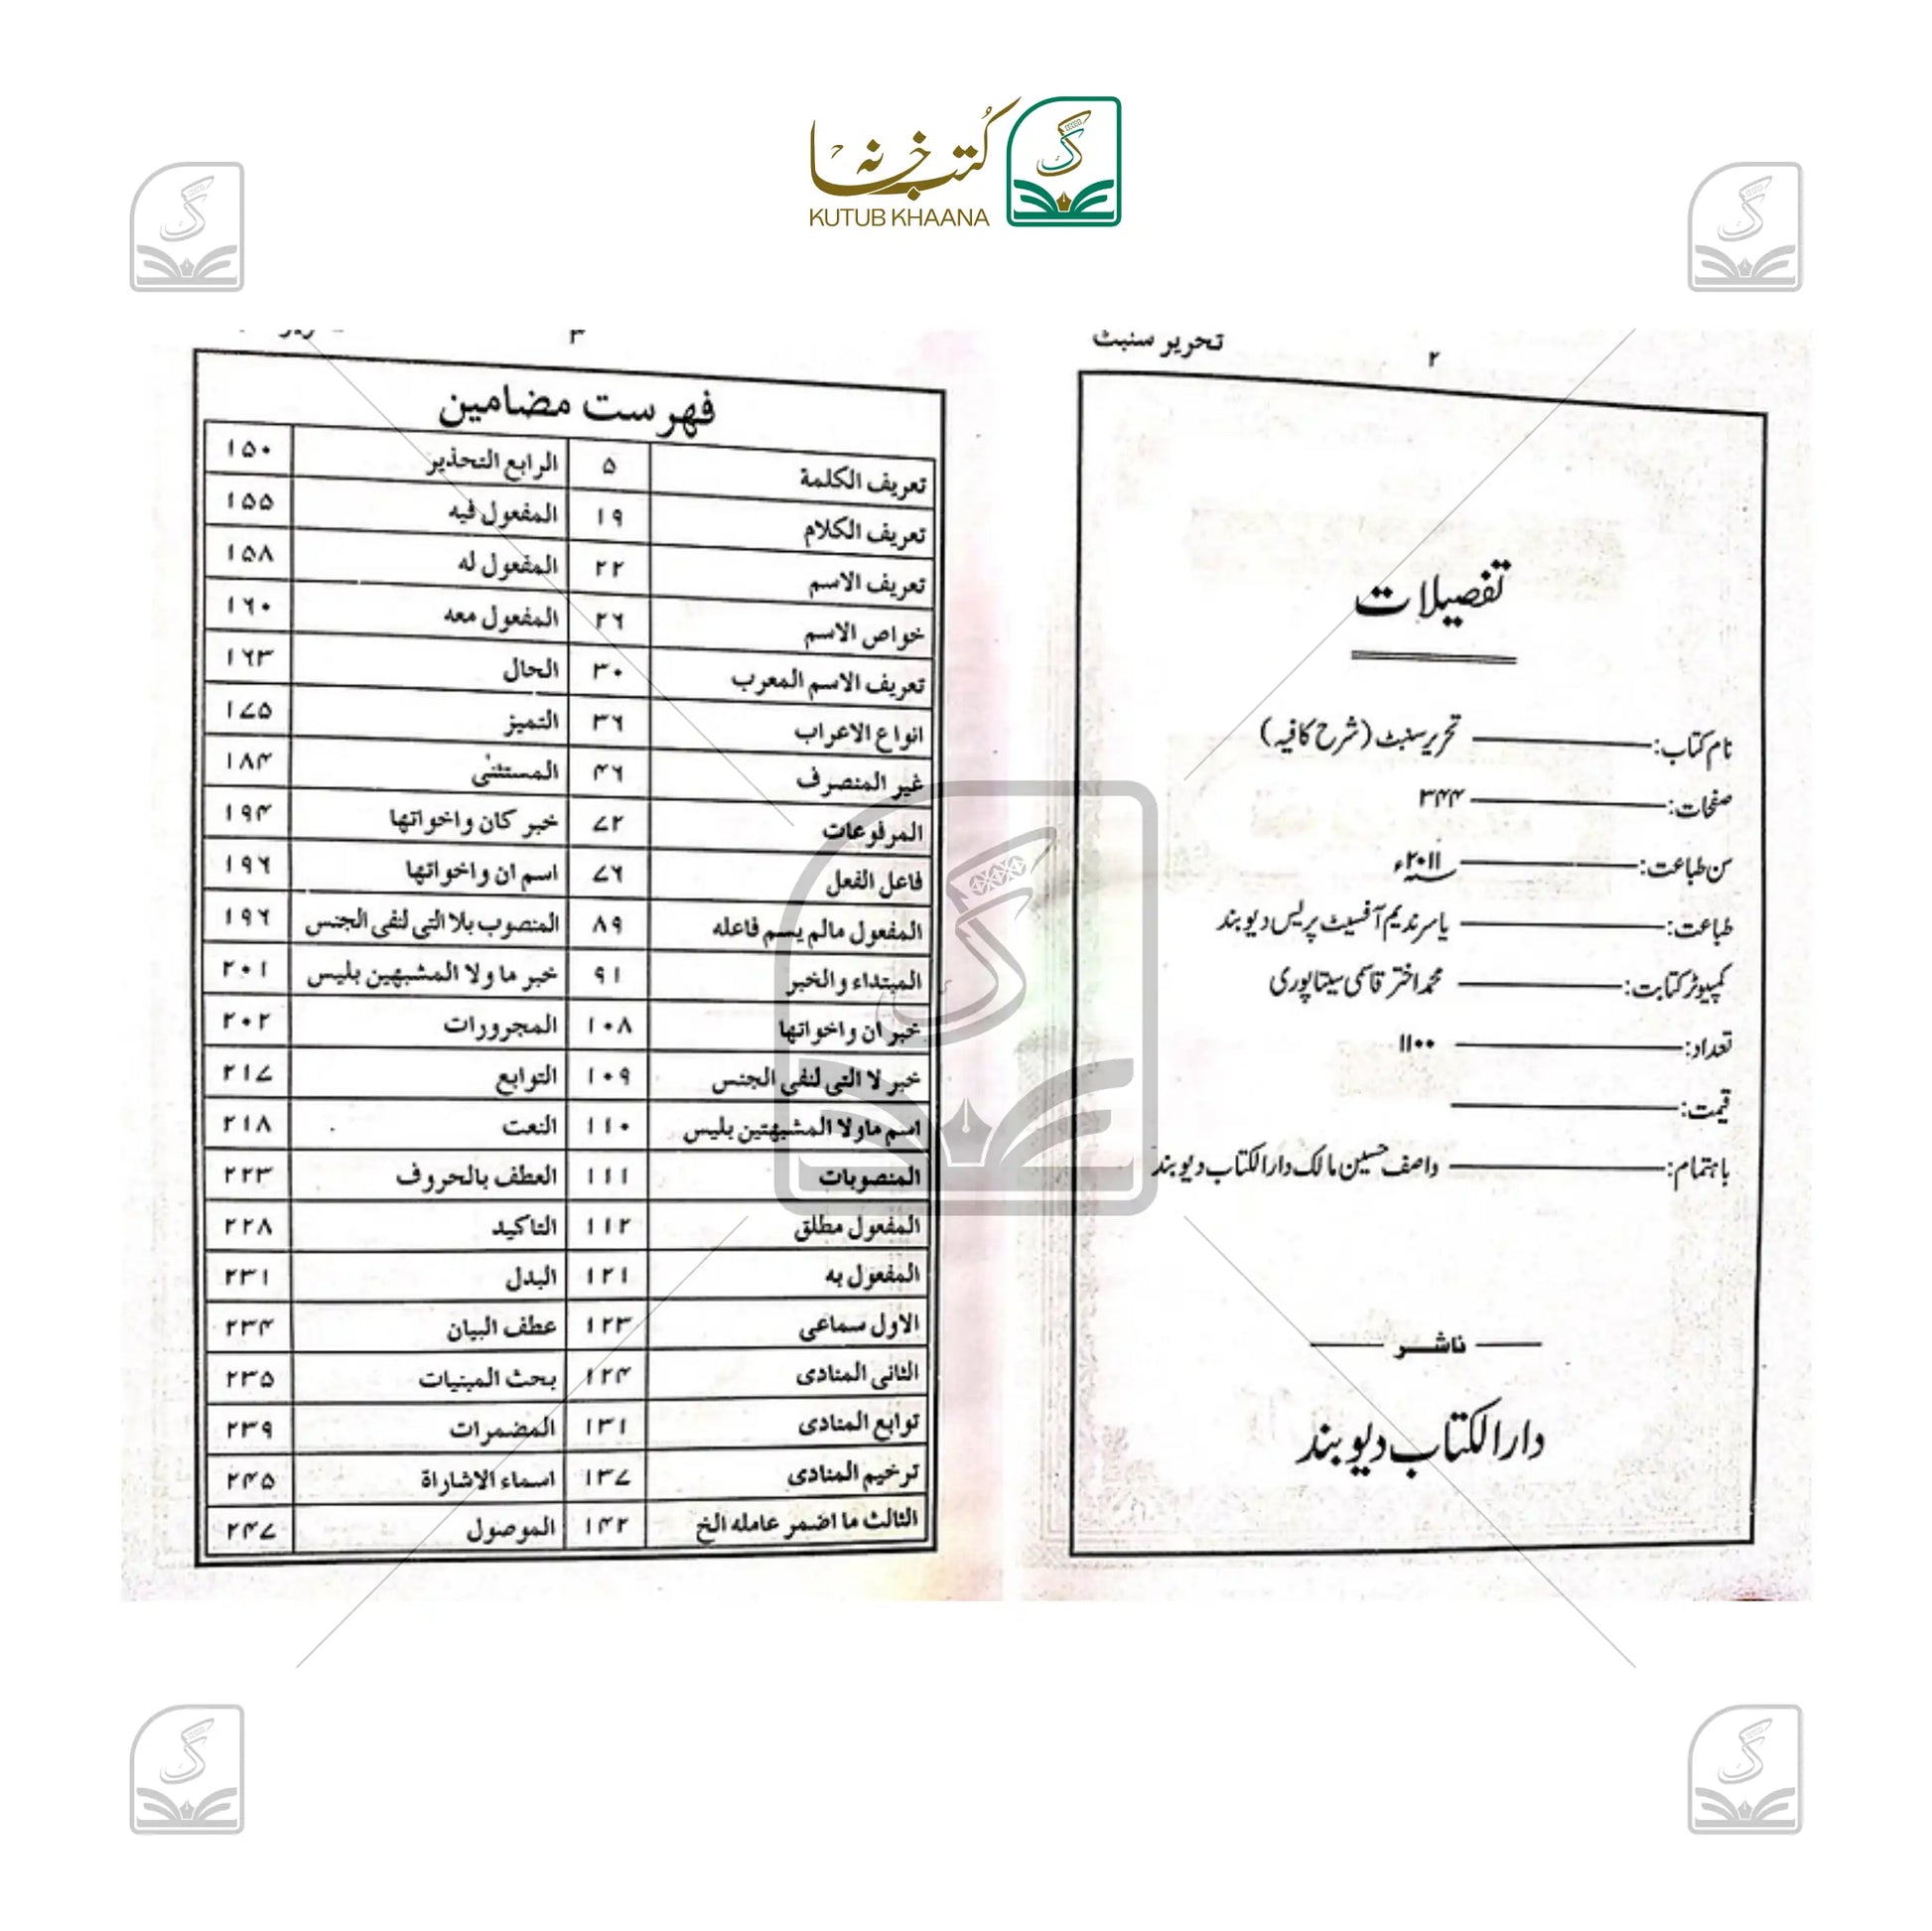 کتب خانہ
KUTUB KHAANA
تحریر سنبٹ
۲
تفصیلات
نام کتاب: تحریر سنبٹ (شرح کافیہ)
صفحات: ۳۴۴
سن طباعت: ۲۰۱۱ء
طباعت: یاسر ندیم آفسیٹ پریس دیوبند
کمپیوٹر کتابت: محمد اختر قاسمی سیتاپوری
تعداد: ۱۱۰۰
قیمت:
باہتمام: واصف حسین مالک دارالکتاب دیوبند
ناشر
دارالکتاب دیوبند
۳
فہرست مضامین
تعریف الکلمة ۵ الرابع التحذیر ۱۵۰
تعریف الکلام ۱۹ المفعول فیه ۱۵۵
تعریف الاسم ۲۲ المفعول له ۱۵۸
خواص الاسم ۲۶ المفعول معه ۱۶۰
تعریف الاسم المعرب ۳۰ الحال ۱۶۳
انواع الاعراب ۳۶ التمیز ۱۷۵
غیر المنصرف ۴۶ المستثنٰی ۱۸۴
المرفوعات ۷۲ خبر کان واخواتها ۱۹۴
فاعل الفعل ۷۶ اسم ان واخواتها ۱۹۶
المفعول مالم یسم فاعله ۸۹ المنصوب بلا التی لنفی الجنس ۱۹۶
المبتداء والخبر ۹۱ خبر ما ولا المشبهین بلیس ۲۰۱
خبر ان واخواتها ۱۰۸ المجرورات ۲۰۲
خبر لا التی لنفی الجنس ۱۰۹ التوابع ۲۱۷
اسم ماولا المشبهتین بلیس ۱۱۰ النعت ۲۱۸
المنصوبات ۱۱۱ العطف بالحروف ۲۲۳
المفعول مطلق ۱۱۲ التاکید ۲۲۸
المفعول به ۱۲۱ البدل ۲۳۱
الاول سماعی ۱۲۳ عطف البیان ۲۳۴
الثانی المنادی ۱۲۴ بحث المبنیات ۲۳۵
توابع المنادی ۱۳۱ المضمرات ۲۳۹
ترخیم المنادی ۱۳۷ اسماء الاشاراة ۲۴۵
الثالث ما اضمر عامله الخ ۱۴۲ الموصول ۲۴۷